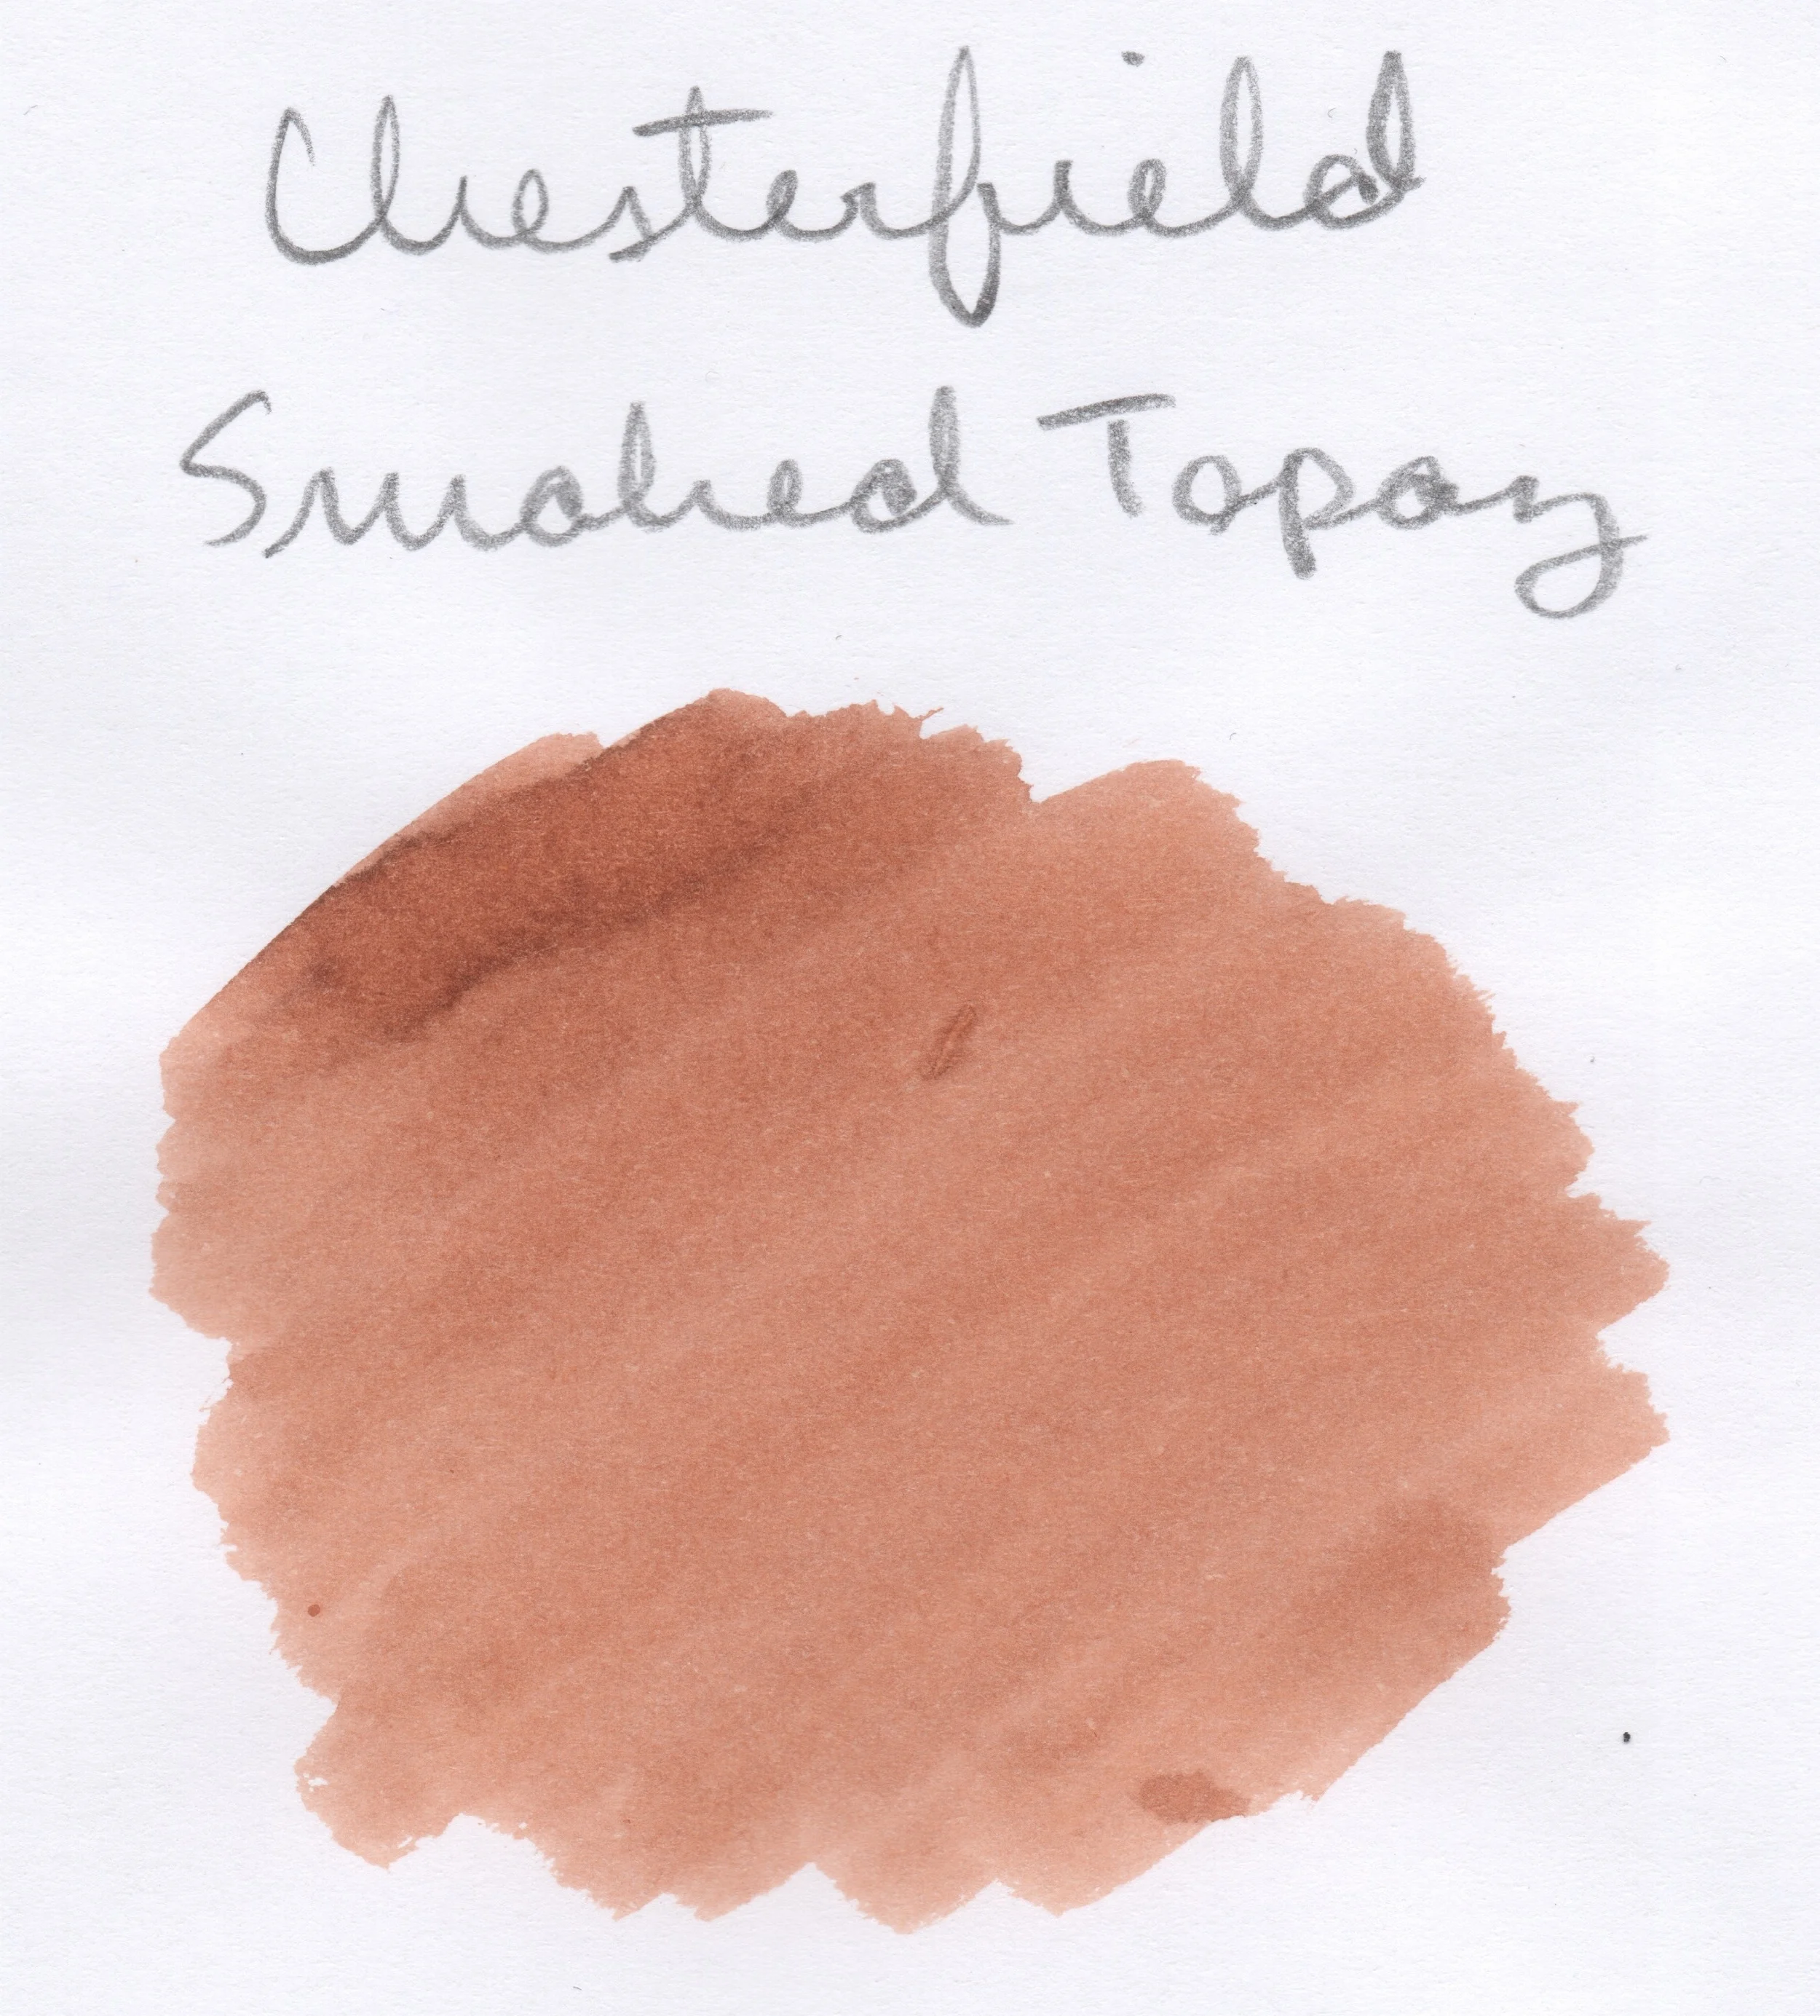 Chesterfield
Smoked Topaz